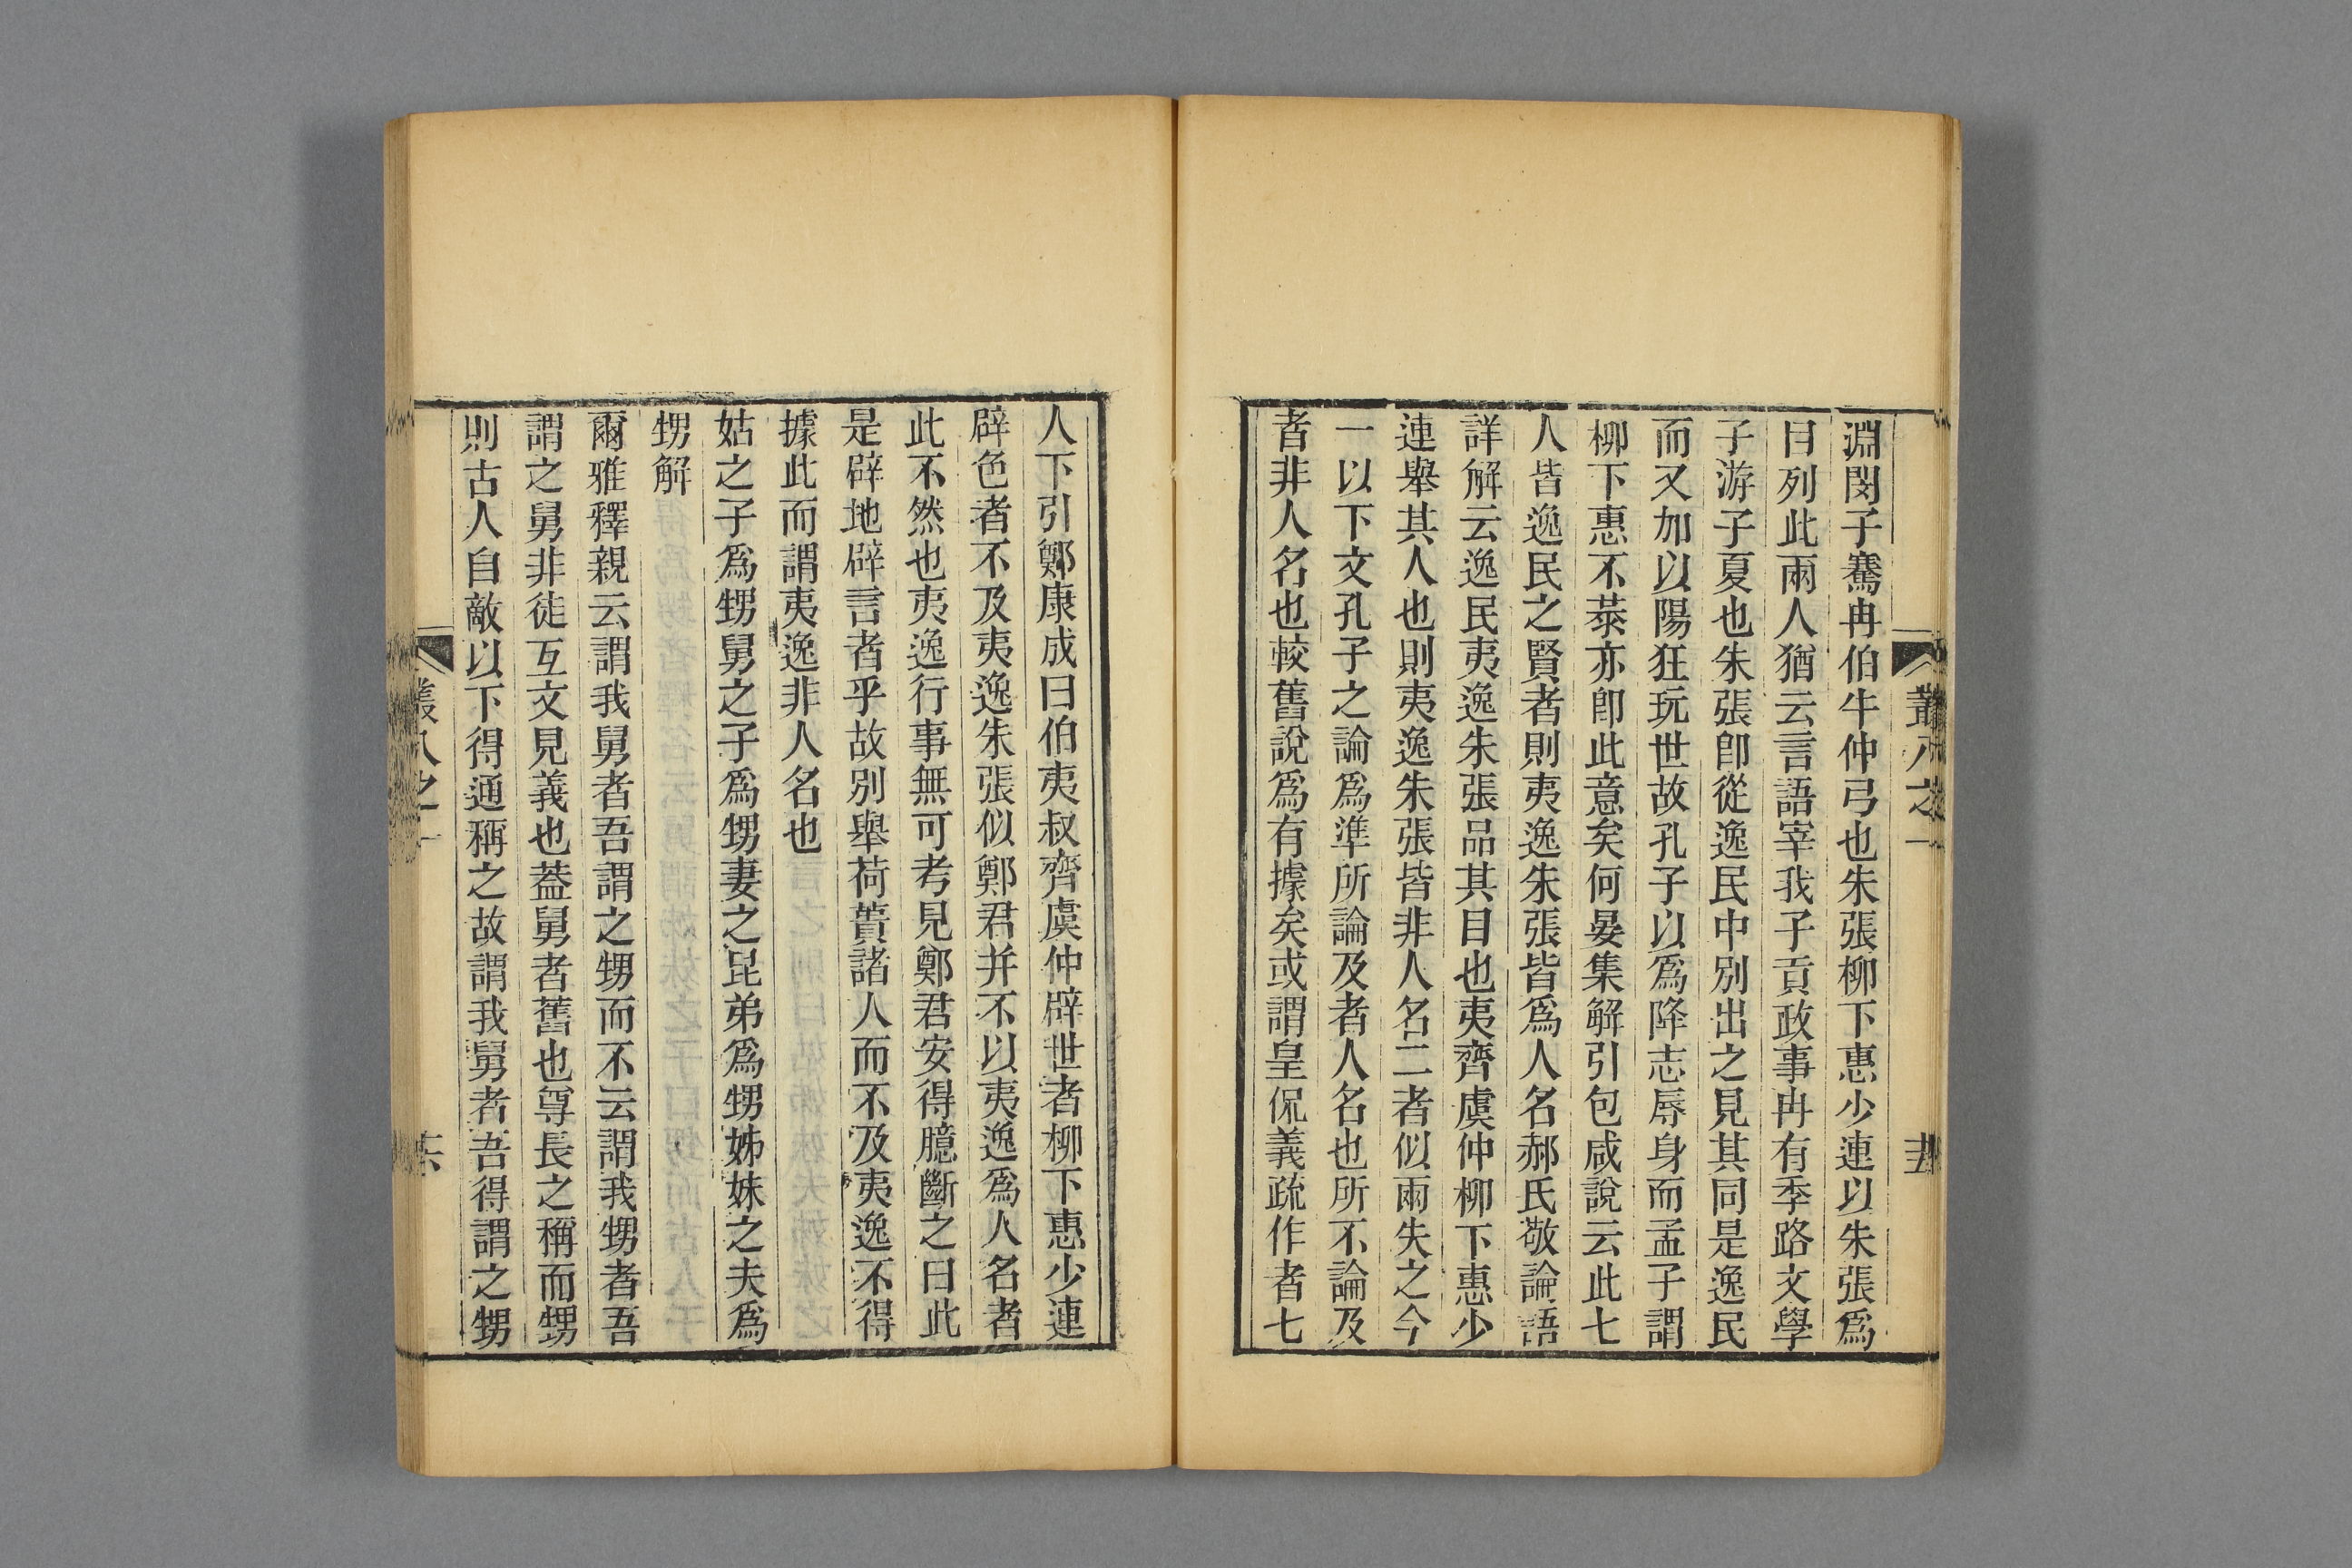 叢八之一
淵閔子騫冉伯牛仲弓也朱張柳下惠少連以朱張爲
目列此兩人猶云言語宰我子貢政事冉有季路文學
子游子夏也朱張卽從逸民中別出之見其同是逸民
而又加以陽狂玩世故孔子以爲降志辱身而孟子謂
柳下惠不恭亦卽此意矣何晏集解引包咸說云此七
人皆逸民之賢者則夷逸朱張皆爲人名郝氏敬論語
詳解云逸民夷逸朱張品其目也夷齊虞仲柳下惠少
連舉其人也則夷逸朱張皆非人名二者似兩失之今
一以下文孔子之論爲準所論及者人名也所不論及
者非人名也較舊說爲有據矣或謂皇侃義疏作者七
人下引鄭康成曰伯夷叔齊虞仲辟世者柳下惠少連
辟色者不及夷逸朱張似鄭君幷不以夷逸爲人名者
此不然也夷逸行事無可考見鄭君安得臆斷之曰此
是辟地辟言者乎故別舉荷蕢諸人而不及夷逸不得
據此而謂夷逸非人名也
姑之子爲甥舅之子爲甥妻之昆弟爲甥姊妹之夫爲
甥解
爾雅釋親云謂我舅者吾謂之甥而不云謂我甥者吾
謂之舅非徒互文見義也葢舅者舊也尊長之稱而甥
則古人自敵以下得通稱之故謂我舅者吾得謂之甥
叢八之一